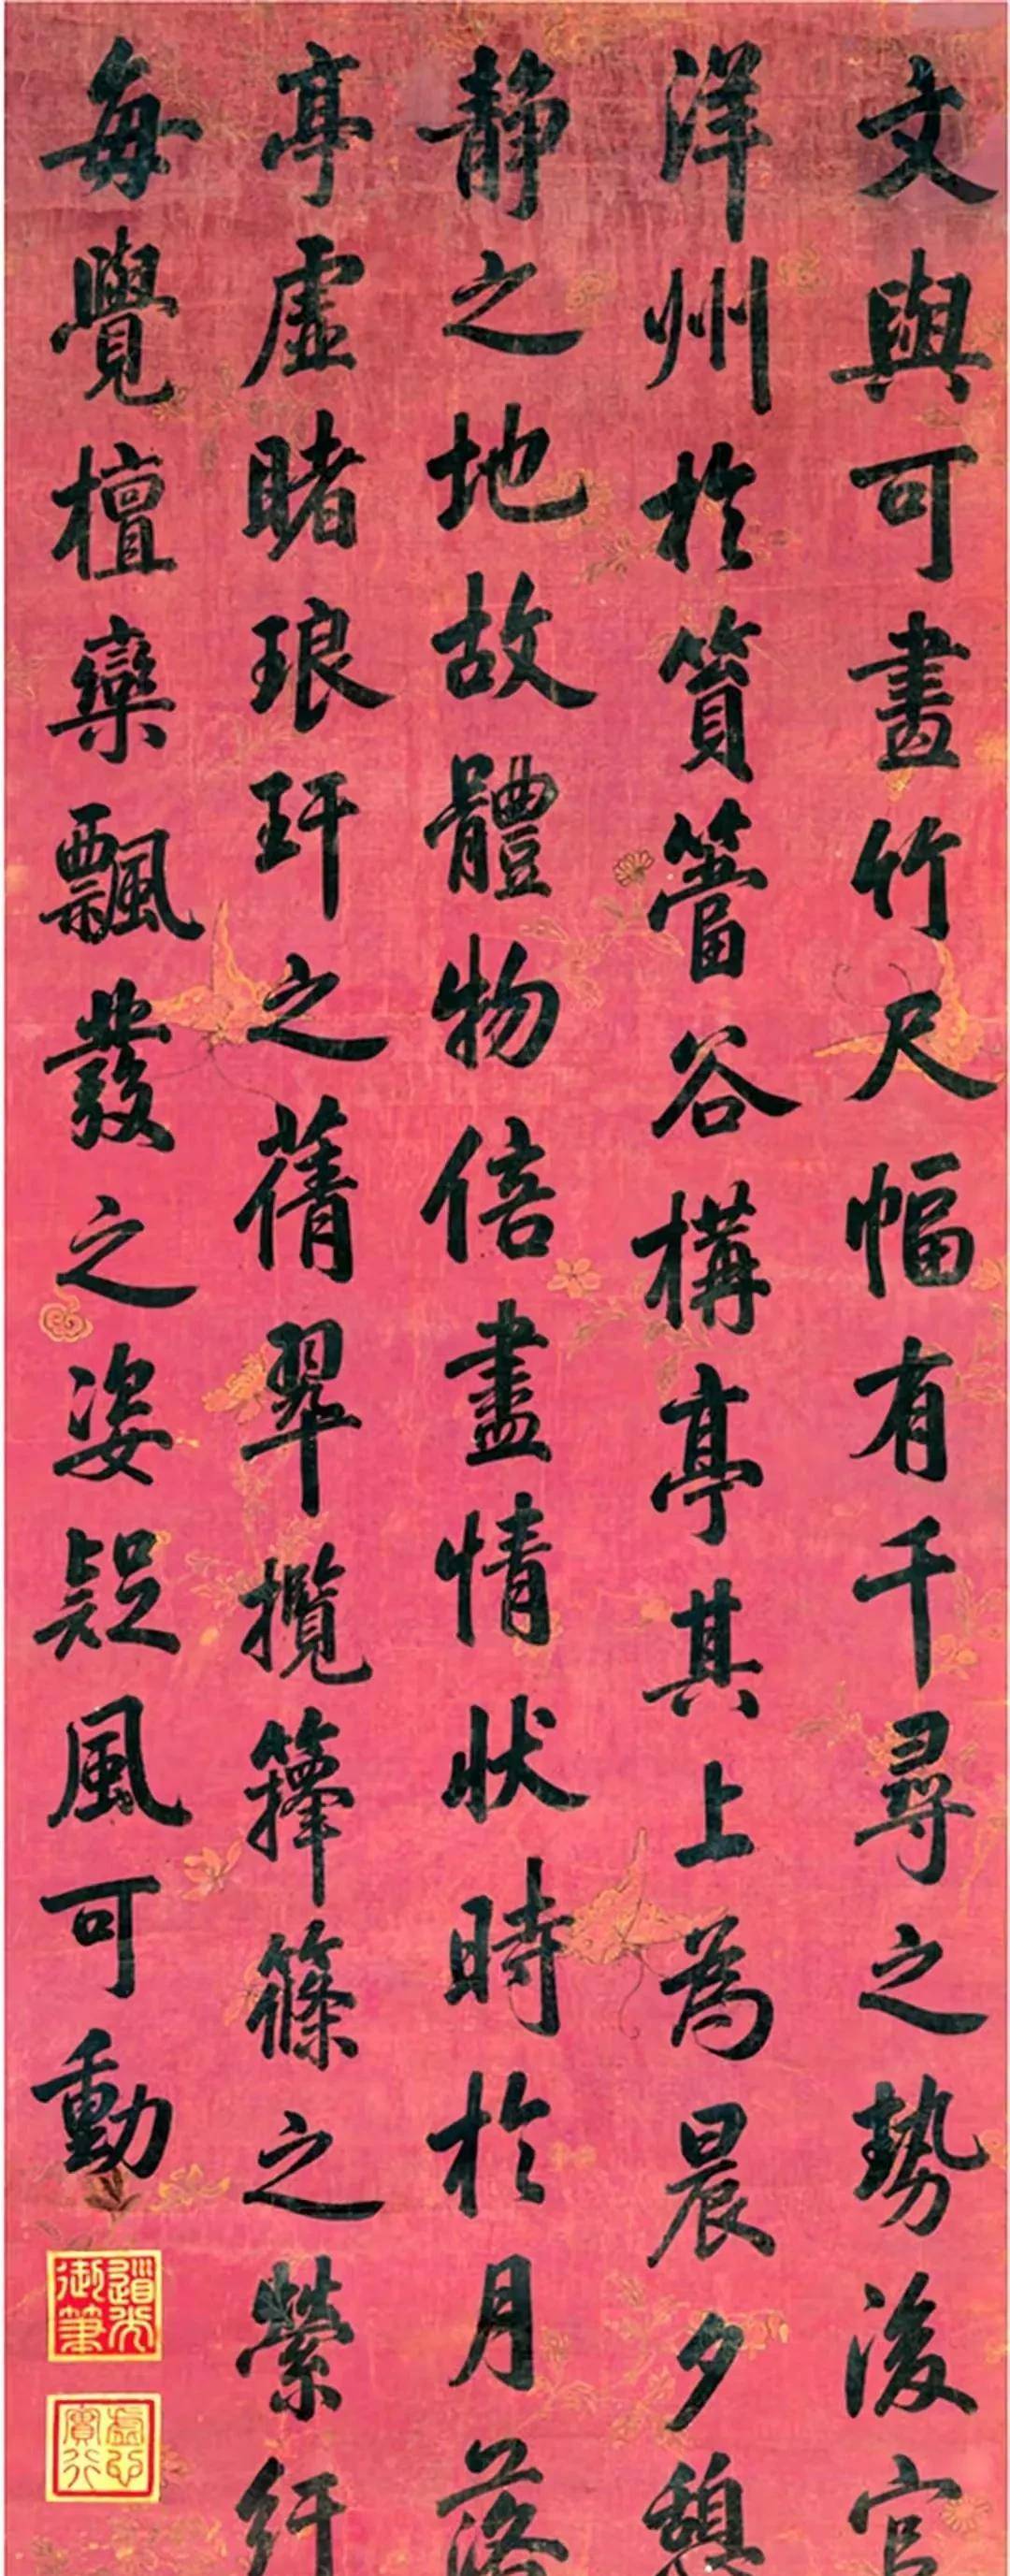 文與可畫竹尺幅有千尋之勢後官
洋州於篔簹谷構亭其上為晨夕憩
靜之地故體物倍盡情狀時於月落
亭虛睹琅玕之蒨翠攬籜篠之縈紆
每覺檀欒飄發之姿疑風可動
道光御筆
虛心實行